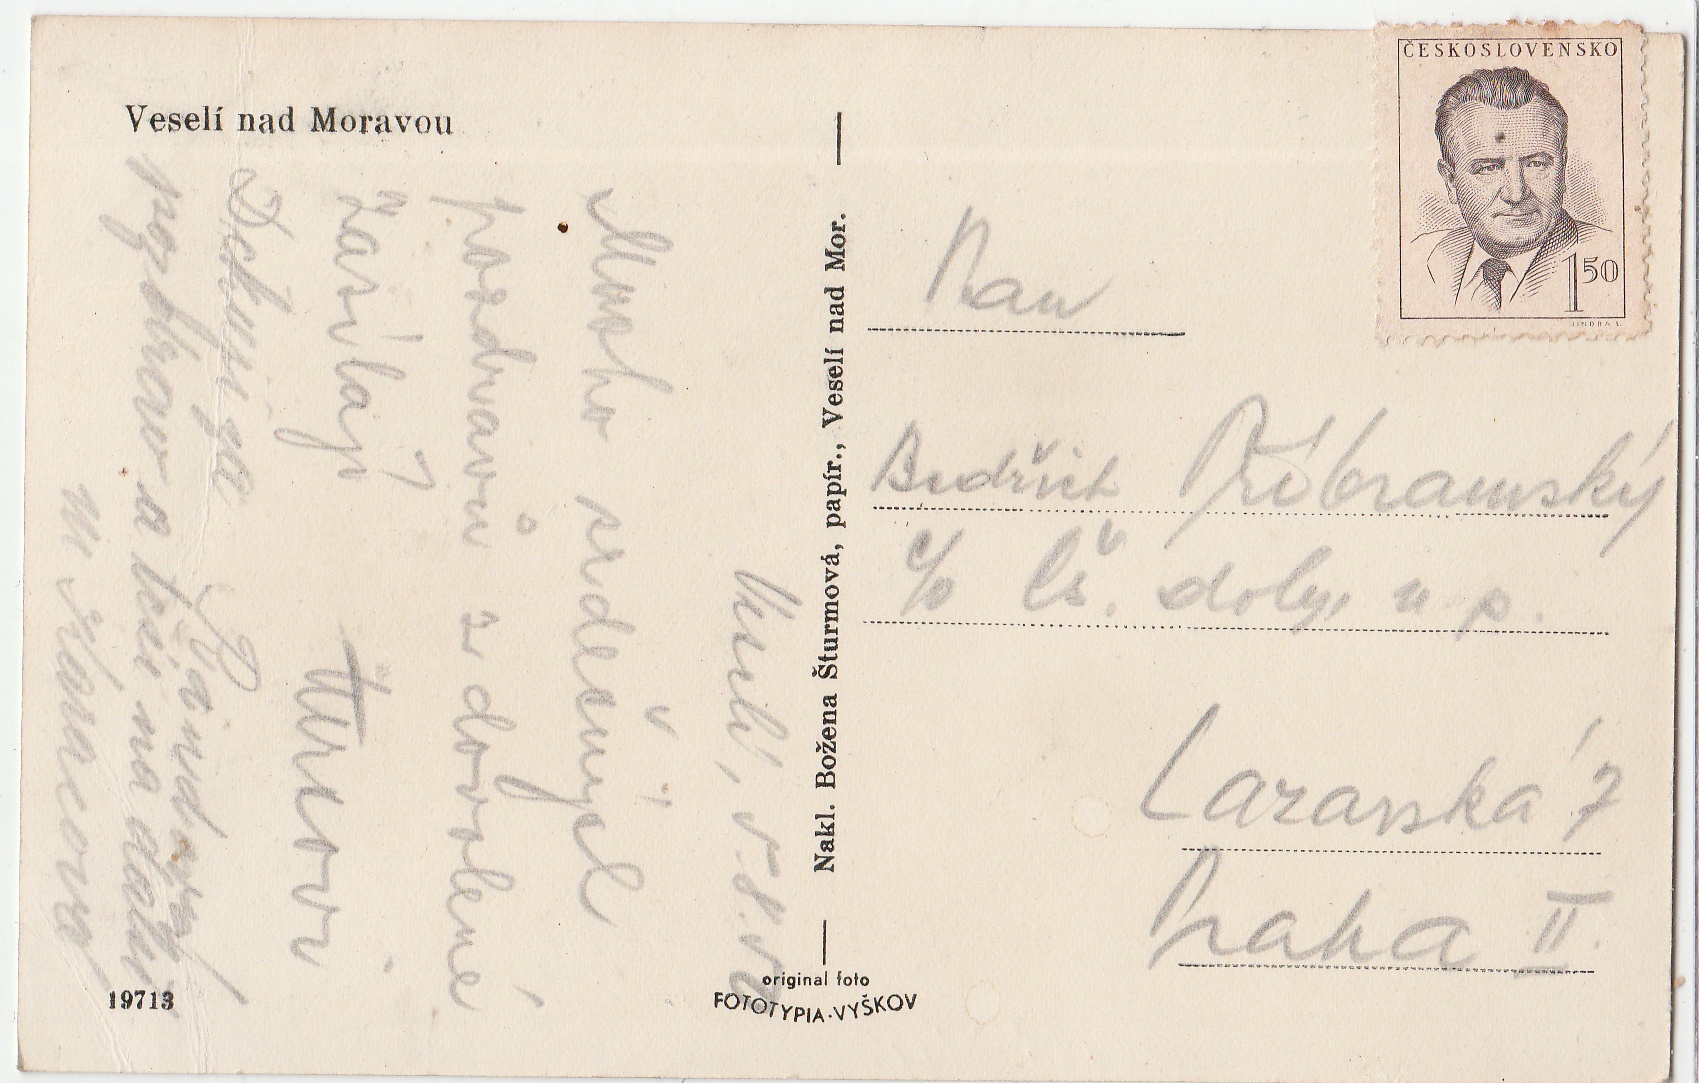 Veselí nad Moravou
Veselí, 5.8.50
Mnoho srdečných
pozdravů z dovolené
zasílají
Turkovi
Děkuji za
pozdrav a těší na další
M. 
Nakl. Božena Šturmová, papír., Veselí nad Mor.
original foto
FOTOTYPIA-VYŠKOV
19713
ČESKOSLOVENSKO
1 50
JINDRA S.
Pan
Bedřich Příbramský
c/o Čs. doly n p.
Lazarská 7
Praha II.